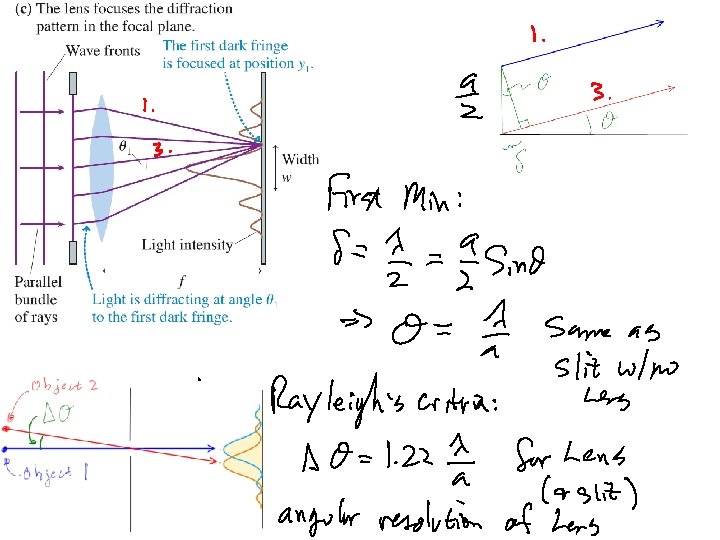 (c) The lens focuses the diffraction
pattern in the focal plane.
Wave fronts
The first dark fringe
is focused at position y₁.
1.
3.
θ₁
Width
w
Light intensity
f
Parallel
bundle
of rays
Light is diffracting at angle θ₁
to the first dark fringe.
1.
a/2
θ
3.
θ
δ
First Min:
δ = λ/2 = a/2 Sinθ
⇒ θ = λ/a same as
slit w/no
Lens
Object 2
Δθ
Object 1
Rayleigh's critria:
Δθ = 1.22 λ/a for Lens
(& slit)
angular resolution of Lens